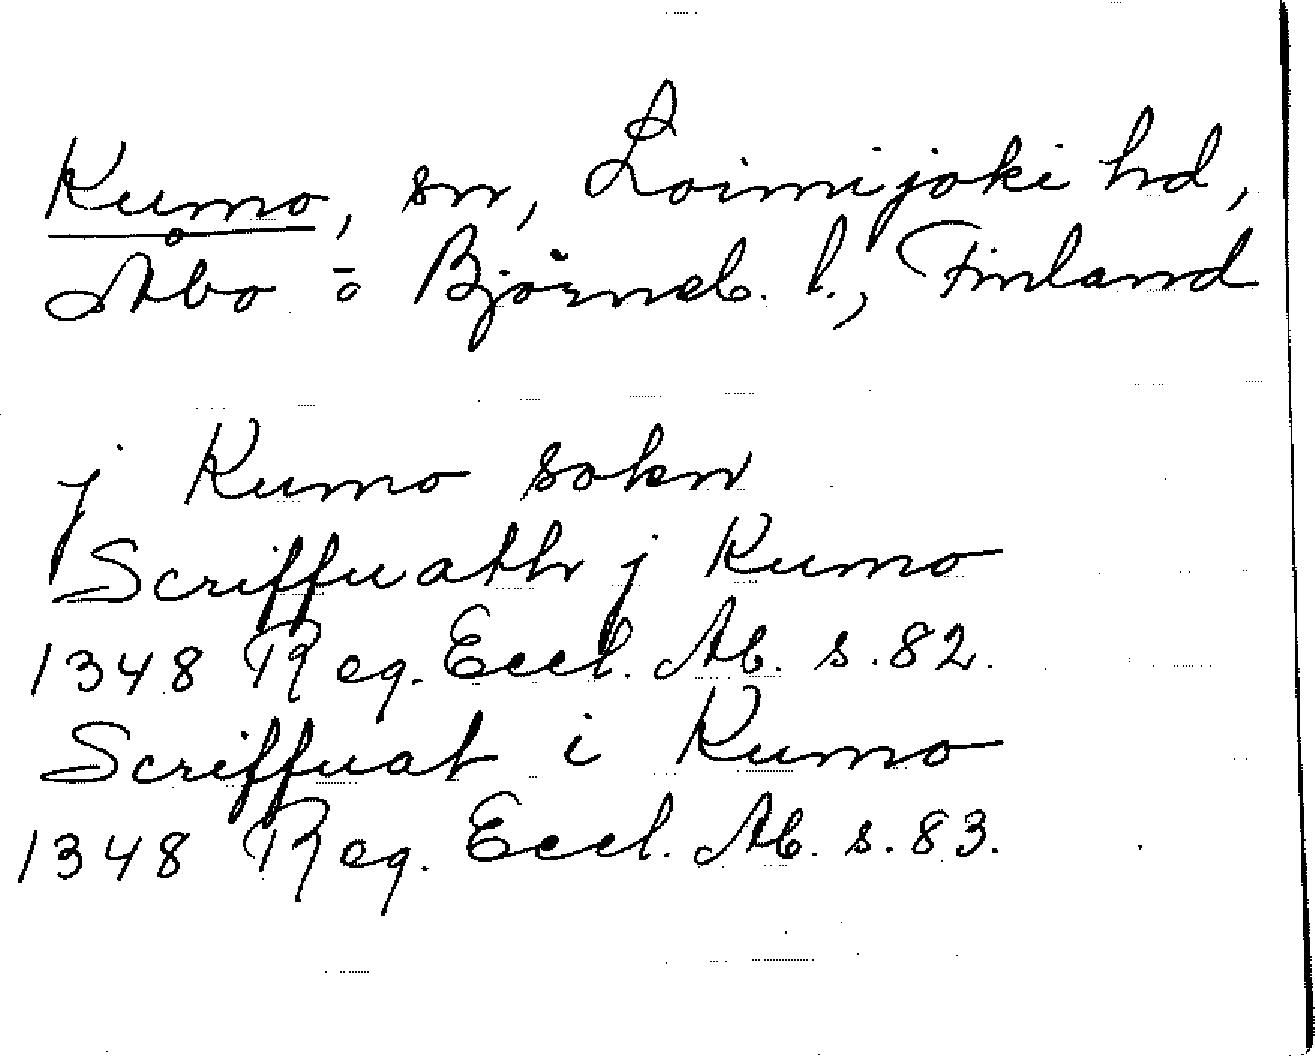 Kumo, sn, Loimijoki hd,
Åbo o Björneb. l., Finland
j Kumo sokn
Scriffwath j Kumo
1348 Reg. Eccl. Ab. s. 82.
Scriffuat i Kumo
1348 Reg. Eccl. Ab. s. 83.